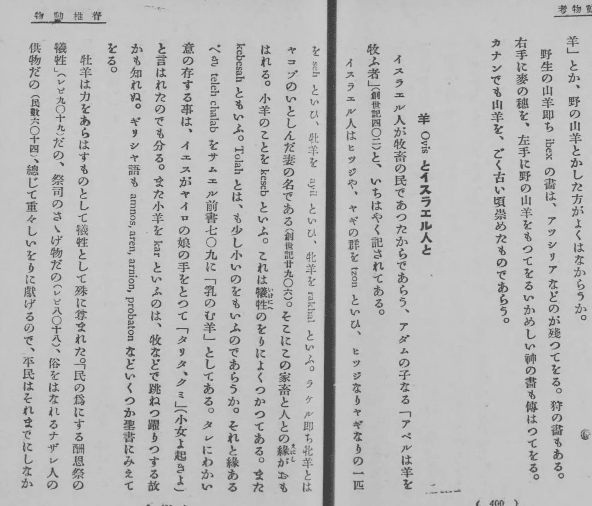 物考
羊」とか、野の山羊とかした方がよくはなからうか。
野生の山羊即ち ibex の畵は、アツシリアなどのが殘つてをる。狩の畵もある。
右手に麥の穗を、左手に野の山羊をもつてをるいかめしい神の畵も傳はつてをる。
カナンでも山羊を、ごく古い頃崇めたものであらう。
羊 Ovis とイスラエル人と
イスラエル人が牧畜の民であつたからであらう、アダムの子なる「アベルは羊を
牧ふ者」(創世記四〇二)と、いちはやく記されてある。
イスラエル人はヒツジや、ヤギの群を tzon といひ、ヒツジなりヤギなりの一匹
( 400 )
脊椎動物
を seh といひ、牡羊を ayil といひ、牝羊を rakhal といふ。ラケル即ち牝羊とは
ヤコブのいとしんだ妻の名である(創世記廿九〇六)。そこにこの家畜と人との緣が
はれる。小羊のことを keseb といふ。これは犧牲のをりによくつかつてある。また
kebesah ともいふ。Tolah とは、も少し小いのをもいふのであらうか。それと緣ある
べき teleh chalab をサムエル前書七〇九に「乳のむ羊」としてある。タレにわかい
意の存する事は、イエスがヤイロの娘の手をとつて「タリタ、クミ」(小女よ起きよ)
と言はれたのでも分る。また小羊を kar といふのは、牧などで跳ねつ躍りつする故
かも知れぬ。ギリシャ語も amnos, aren, arnion, probaton などいくつか聖書にみえて
をる。
牡羊は力をあらはすものとして犧牲として殊に尊まれた。「民の爲にする酬恩祭の
犧牲」(レビ九〇十九)だの、祭司のさゝげ物だの(レビ八〇十八)、俗をはなれるナザレ人の
供物だの(民數六〇十四)、總じて重々しいをりに獻げるので、平民はそれまでにしなか